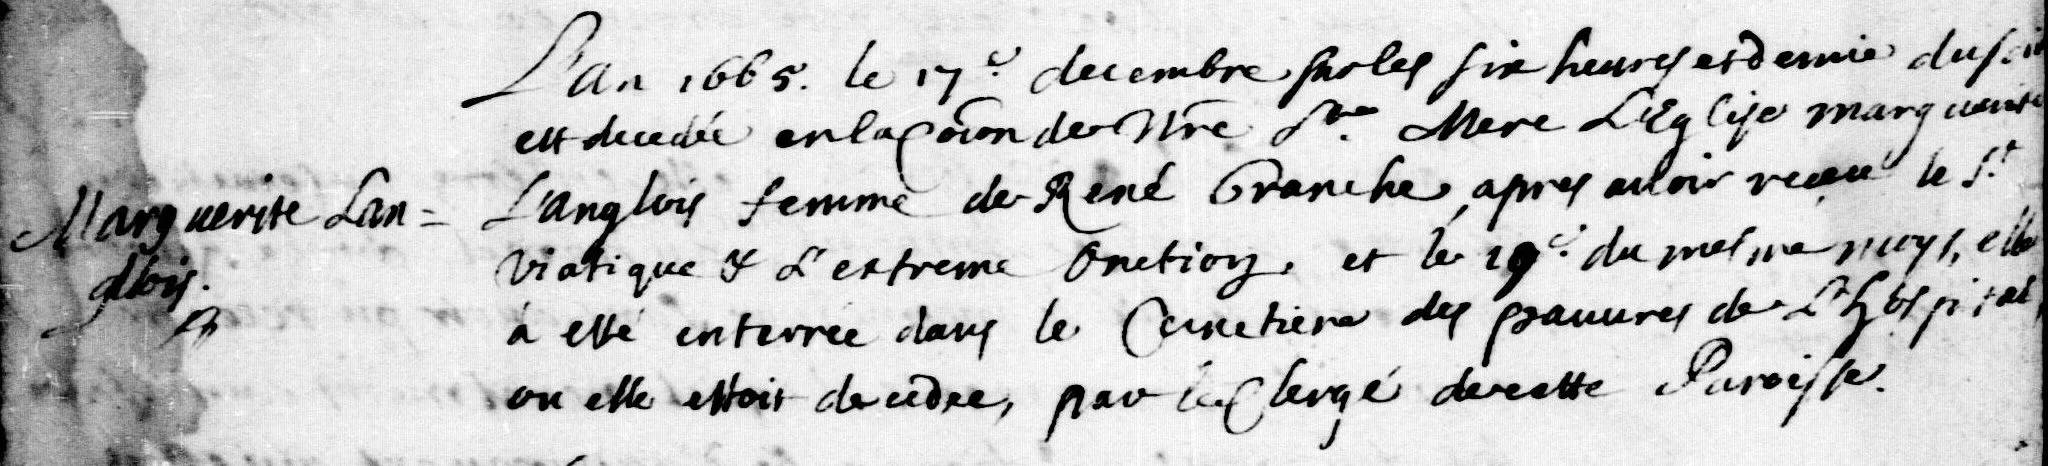 L'an 1665. le 17e. decembre sur les six heures et demie du soir
est decedée en la Coion de Nre Ste. Mere L'Eglise marguerite
Marguerite Lan=
glois.
L'anglois femme de René Branche, apres auoir receu le St.
Viatique & L'extreme Onction, et le 19e. du mesme moys, elle
à esté enterrée dans le Cemetiere des pauures de L'Hospital,
ou elle estoit decedée, par le Clergé de cette Paroisse.